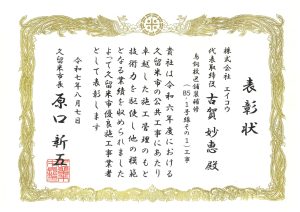 表彰状
株式会社 エイコウ
代表取締役 古賀 妙恵 殿
鳥飼校区舗装補修
(B5-1号線その1)工事
貴社は令和六年度における
久留米市の公共工事にあたり
卓越した施工管理のもと
技術力を駆使し他の模範
となる業績を収められました
よって久留米市優良施工事業者
として表彰します
令和七年八月七日
久留米市長 原口 新五